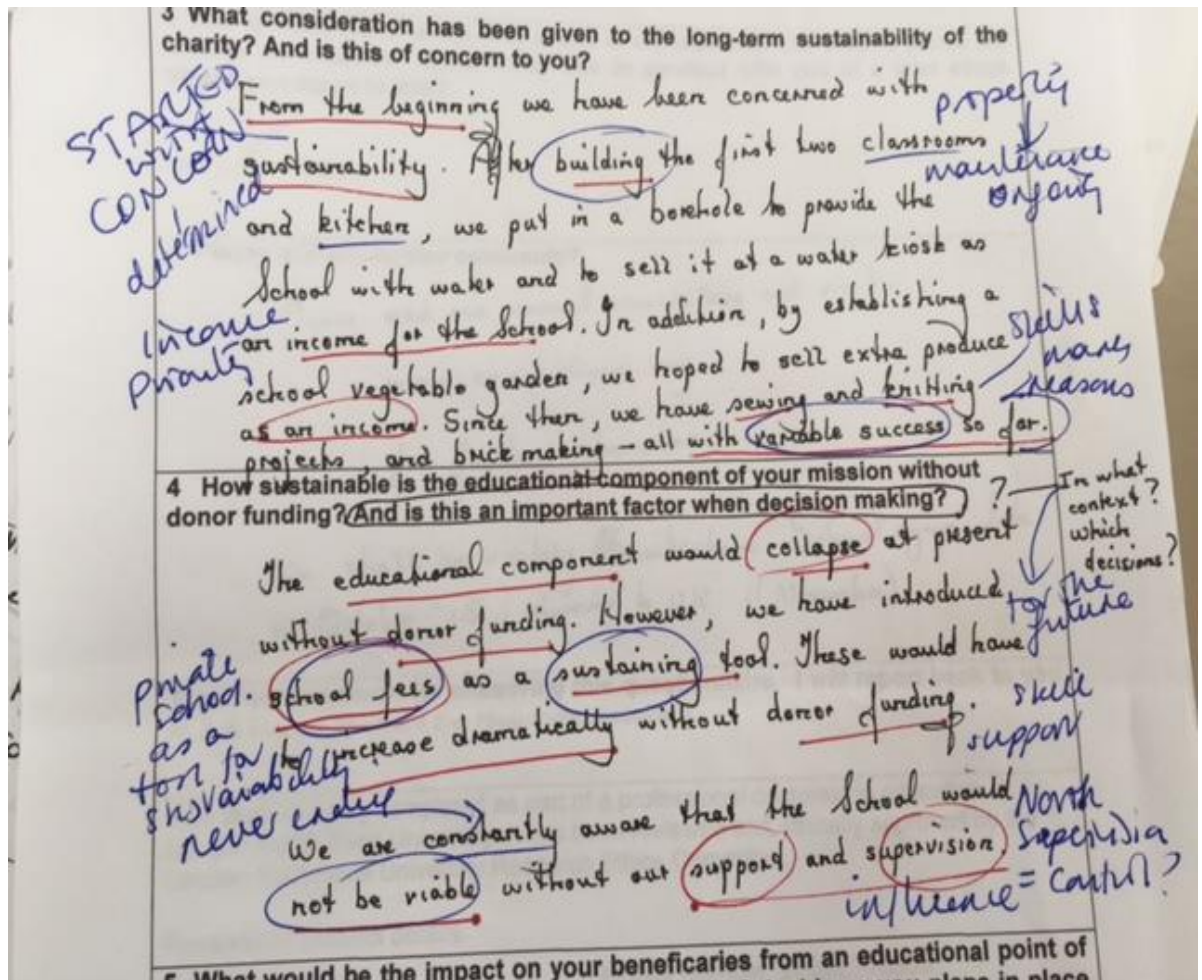 3 What consideration has been given to the long-term sustainability of the
charity? And is this of concern to you?
From the beginning we have been concerned with
sustainability. After building the first two classrooms
and kitchen, we put in a borehole to provide the
School with water and to sell it at a water kiosk as
an income for the School. In addition, by establishing a
school vegetable garden, we hoped to sell extra produce
as an income. Since then, we have sewing and knitting
projects, and brick making – all with variable success so far.
STARTED
WITH
CONCERN
determined
income
priority
property
maintenance
ongoing
skills
many
reasons
4 How sustainable is the educational component of your mission without
donor funding? And is this an important factor when decision making?
? In what
context?
which
decisions?
The educational component would collapse at present
without donor funding. However, we have introduced
school fees as a sustaining tool. These would have
to increase dramatically without donor funding.
We are constantly aware that the School would
not be viable without our support and supervision.
for the
future
private
school.
as a
tool for
never
skill
support
North
influence = control?
5 What would be the impact on your beneficiaries from an educational point of